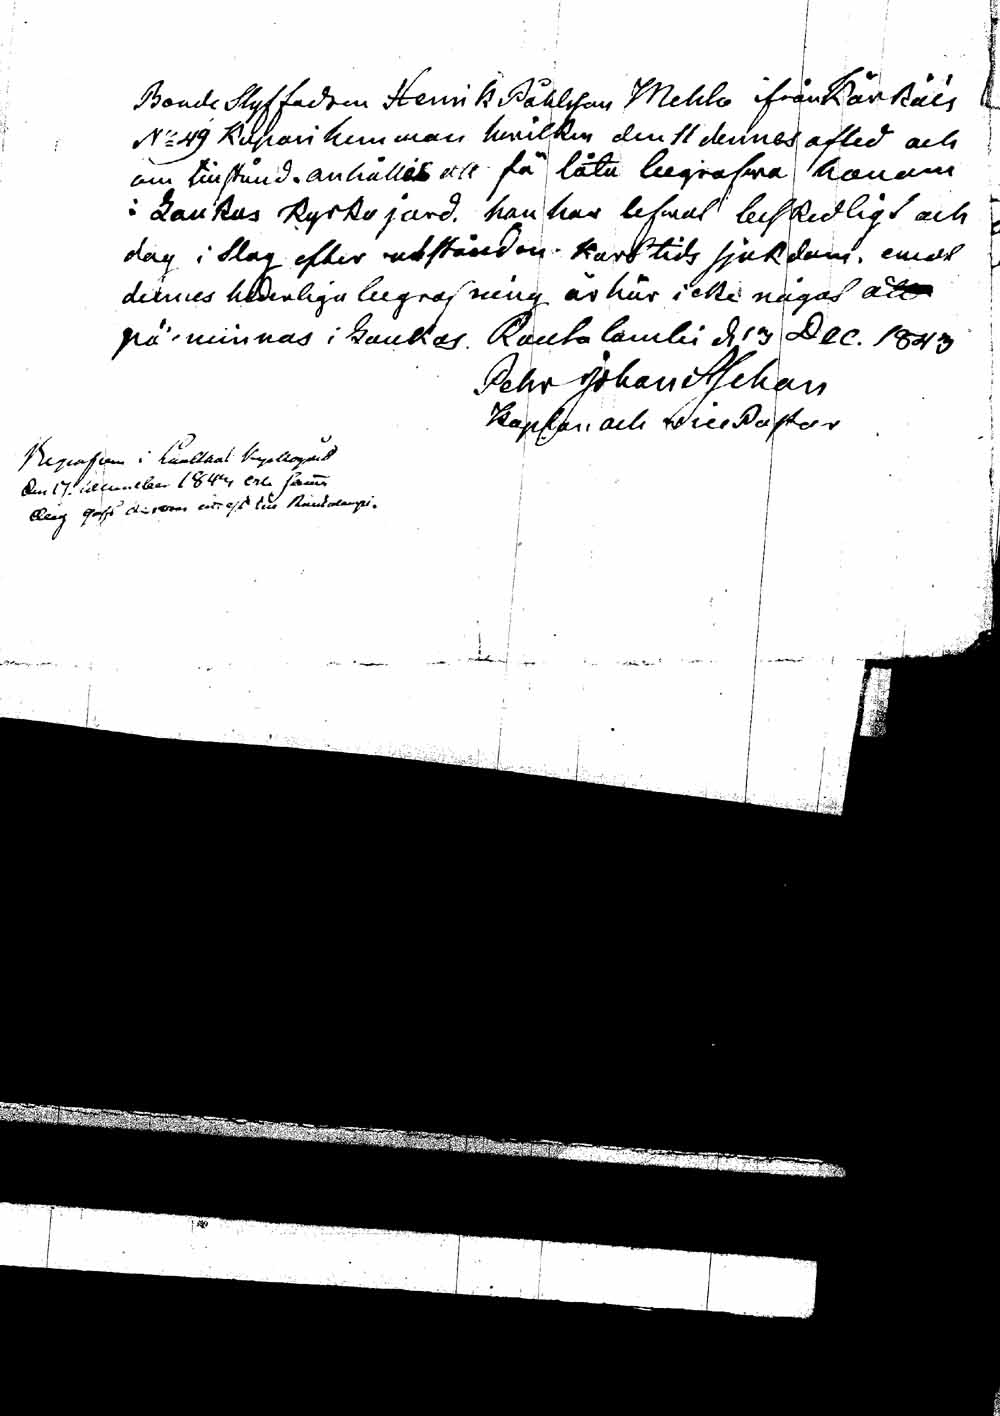 Bonde Styffadren Henrik Påhlsson Mehlo ifrån Kärkäis
No 49 Kapari hemman hvilken den 11 dennes afled och
om tillstånd. anhålles att få låta begrafva honom
i Gaukas Kyrkojord. han har lefvat beskedligt och
dog i Slag efter utstånden kort tids sjukdom. emot
dennes hederliga begrafning är här icke något att
på-minnas i Gaukas. Rautalambi d. 13 Dec. 1843
Pehr Johan
Kaplan och vice Pastor
Begrafven i
den 17. december 184 och samma
dag till Rautalampi.